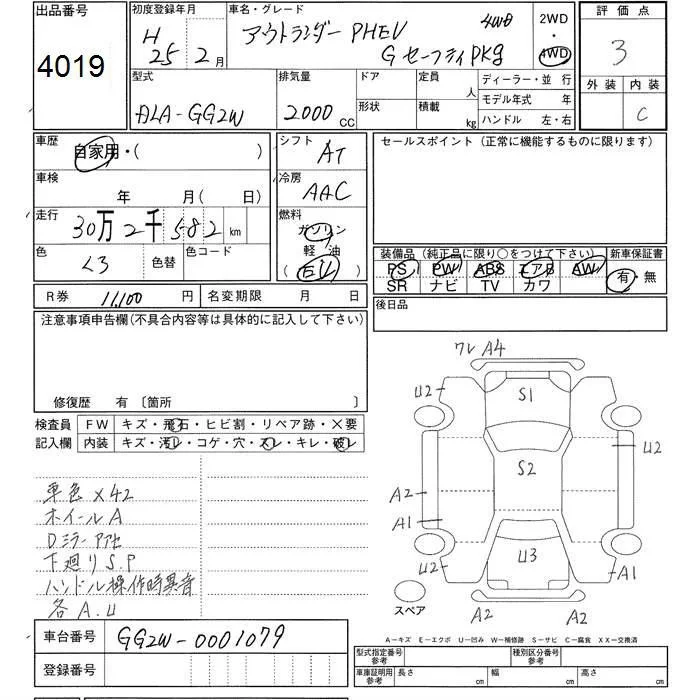 出品番号
4019
初度登録年月
H 25 2月
車名・グレード
アウトランダー PHEV 4WD
G セーフティPKg
2WD
・
4WD
評価点
3
外装 内装
C
型式
DLA-GG2W
排気量
2000 CC
ドア
形状
定員
人
積載
kg
ディーラー・並行
モデル年式 年
ハンドル 左・右
車歴
自家用・( )
シフト
AT
車検
年 月( 日)
冷房
AAC
走行
30万2千582 km
燃料
ガソリン
軽油
(EV)
色
クロ
色替
色コード
R券 11,100 円
名変期限 月 日
セールスポイント(正常に機能するものに限ります)
装備品(純正品に限り○をつけて下さい)
新車保証書
PS PW ABS エアB AW
SR ナビ TV カワ
有・無
後日品
注意事項申告欄(不具合内容等は具体的に記入して下さい)
修復歴 有 〔箇所 〕
検査員
記入欄
FW キズ・飛石・ヒビ割・リペア跡・×要
内装 キズ・汚レ・コゲ・穴・スレ・キレ・破レ
単色×42
ホイールA
Dミラーアセ
下廻りS.P
ハンドル操作時異音
各A.U
ワレ A4
U2
S1
U2
S2
A2
A1
U2
U2
U3
A1
A2
A2
スペア
A-キズ E-エクボ U-凹み W-補修跡 S-サビ C-腐食 XX-交換済
車台番号
GG2W-0001079
登録番号
型式指定番号
参考
種別区分番号
参考
車庫証明用
参考
長さ cm
幅 cm
高さ cm